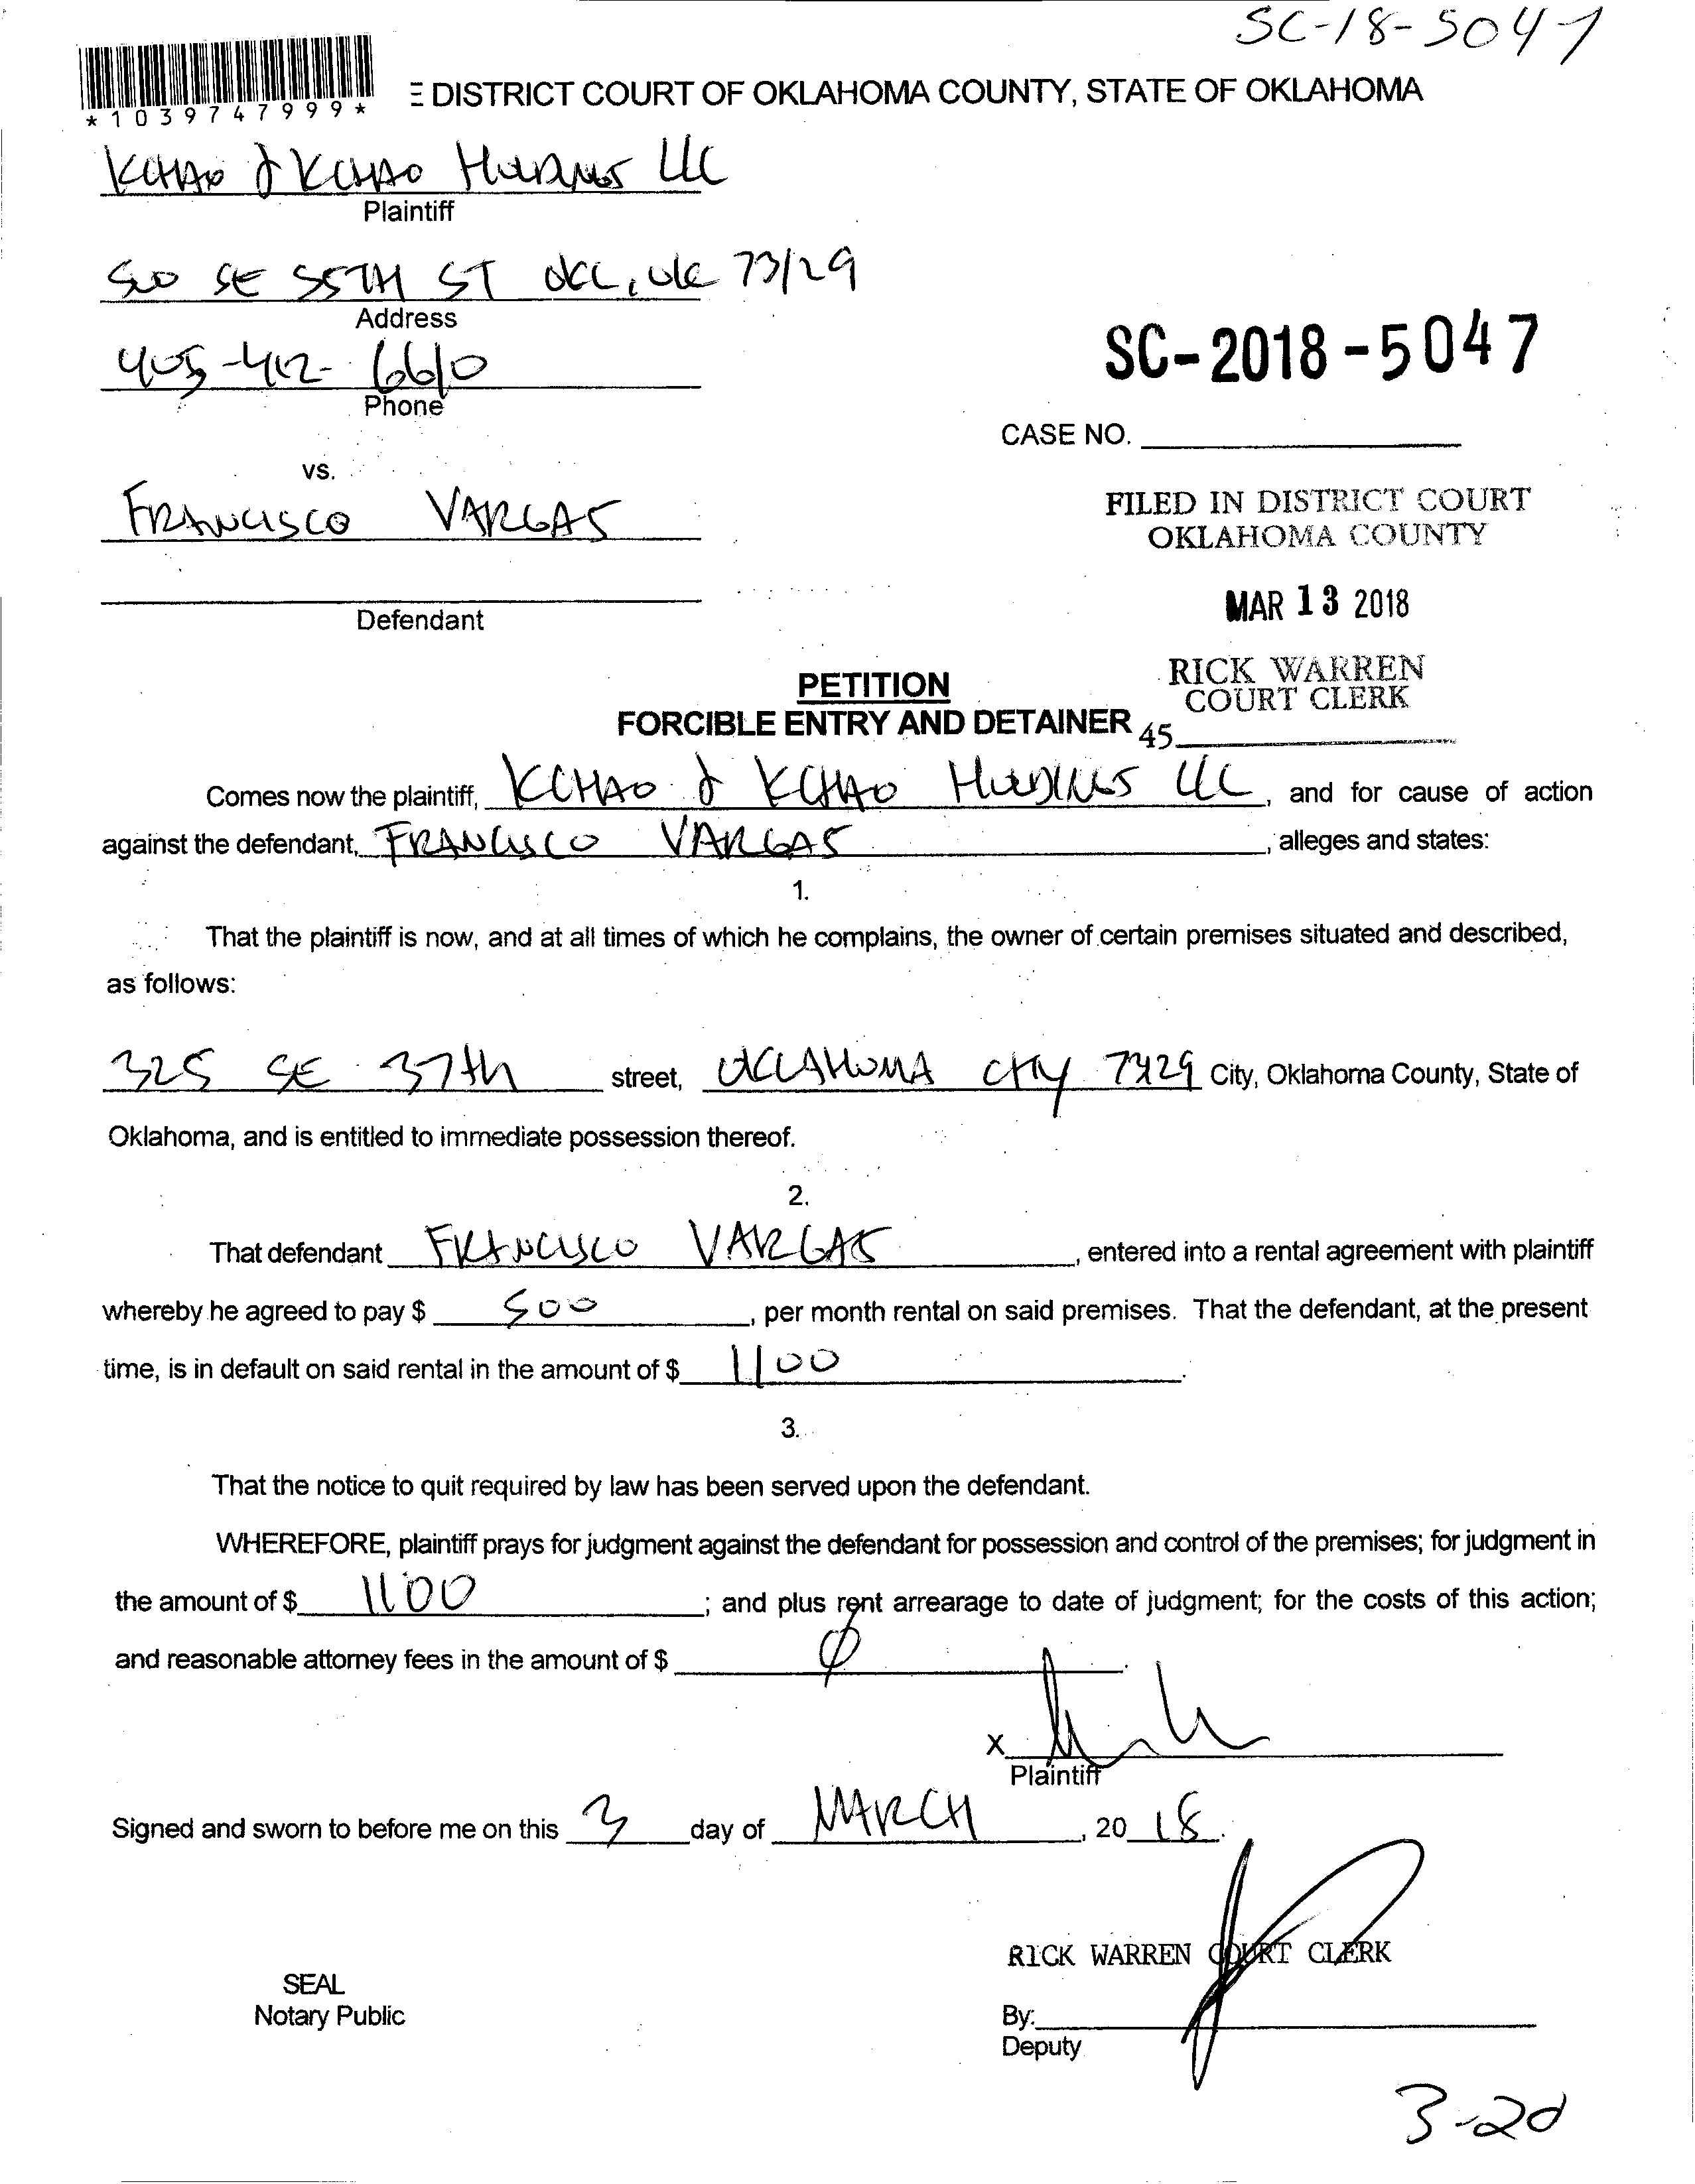 SC-18-5047
*1039747999*
E DISTRICT COURT OF OKLAHOMA COUNTY, STATE OF OKLAHOMA
KCHAO & KCHAO HOLDINGS LLC
Plaintiff
500 SE 55TH ST OKC, OK 73129
Address
405-412-6610
Phone
SC-2018-5047
CASE NO.
vs.
FRANCISCO VARGAS
FILED IN DISTRICT COURT
OKLAHOMA COUNTY
Defendant
MAR 13 2018
RICK WARREN
COURT CLERK
PETITION
FORCIBLE ENTRY AND DETAINER
45
Comes now the plaintiff, KCHAO & KCHAO HOLDINGS LLC, and for cause of action
against the defendant, FRANCISCO VARGAS, alleges and states:
1.
That the plaintiff is now, and at all times of which he complains, the owner of certain premises situated and described,
as follows:
325 SE 37th street, OKLAHOMA CITY 73129 City, Oklahoma County, State of
Oklahoma, and is entitled to immediate possession thereof.
2.
That defendant FRANCISCO VARGAS, entered into a rental agreement with plaintiff
whereby he agreed to pay $ 500, per month rental on said premises. That the defendant, at the present
time, is in default on said rental in the amount of $ 1100.
3.
That the notice to quit required by law has been served upon the defendant.
WHEREFORE, plaintiff prays for judgment against the defendant for possession and control of the premises; for judgment in
the amount of $ 1100; and plus rent arrearage to date of judgment; for the costs of this action;
and reasonable attorney fees in the amount of $ Ø.
X
Plaintiff
Signed and sworn to before me on this 3 day of MARCH, 2018.
RICK WARREN COURT CLERK
SEAL
Notary Public
By:
Deputy
3-20